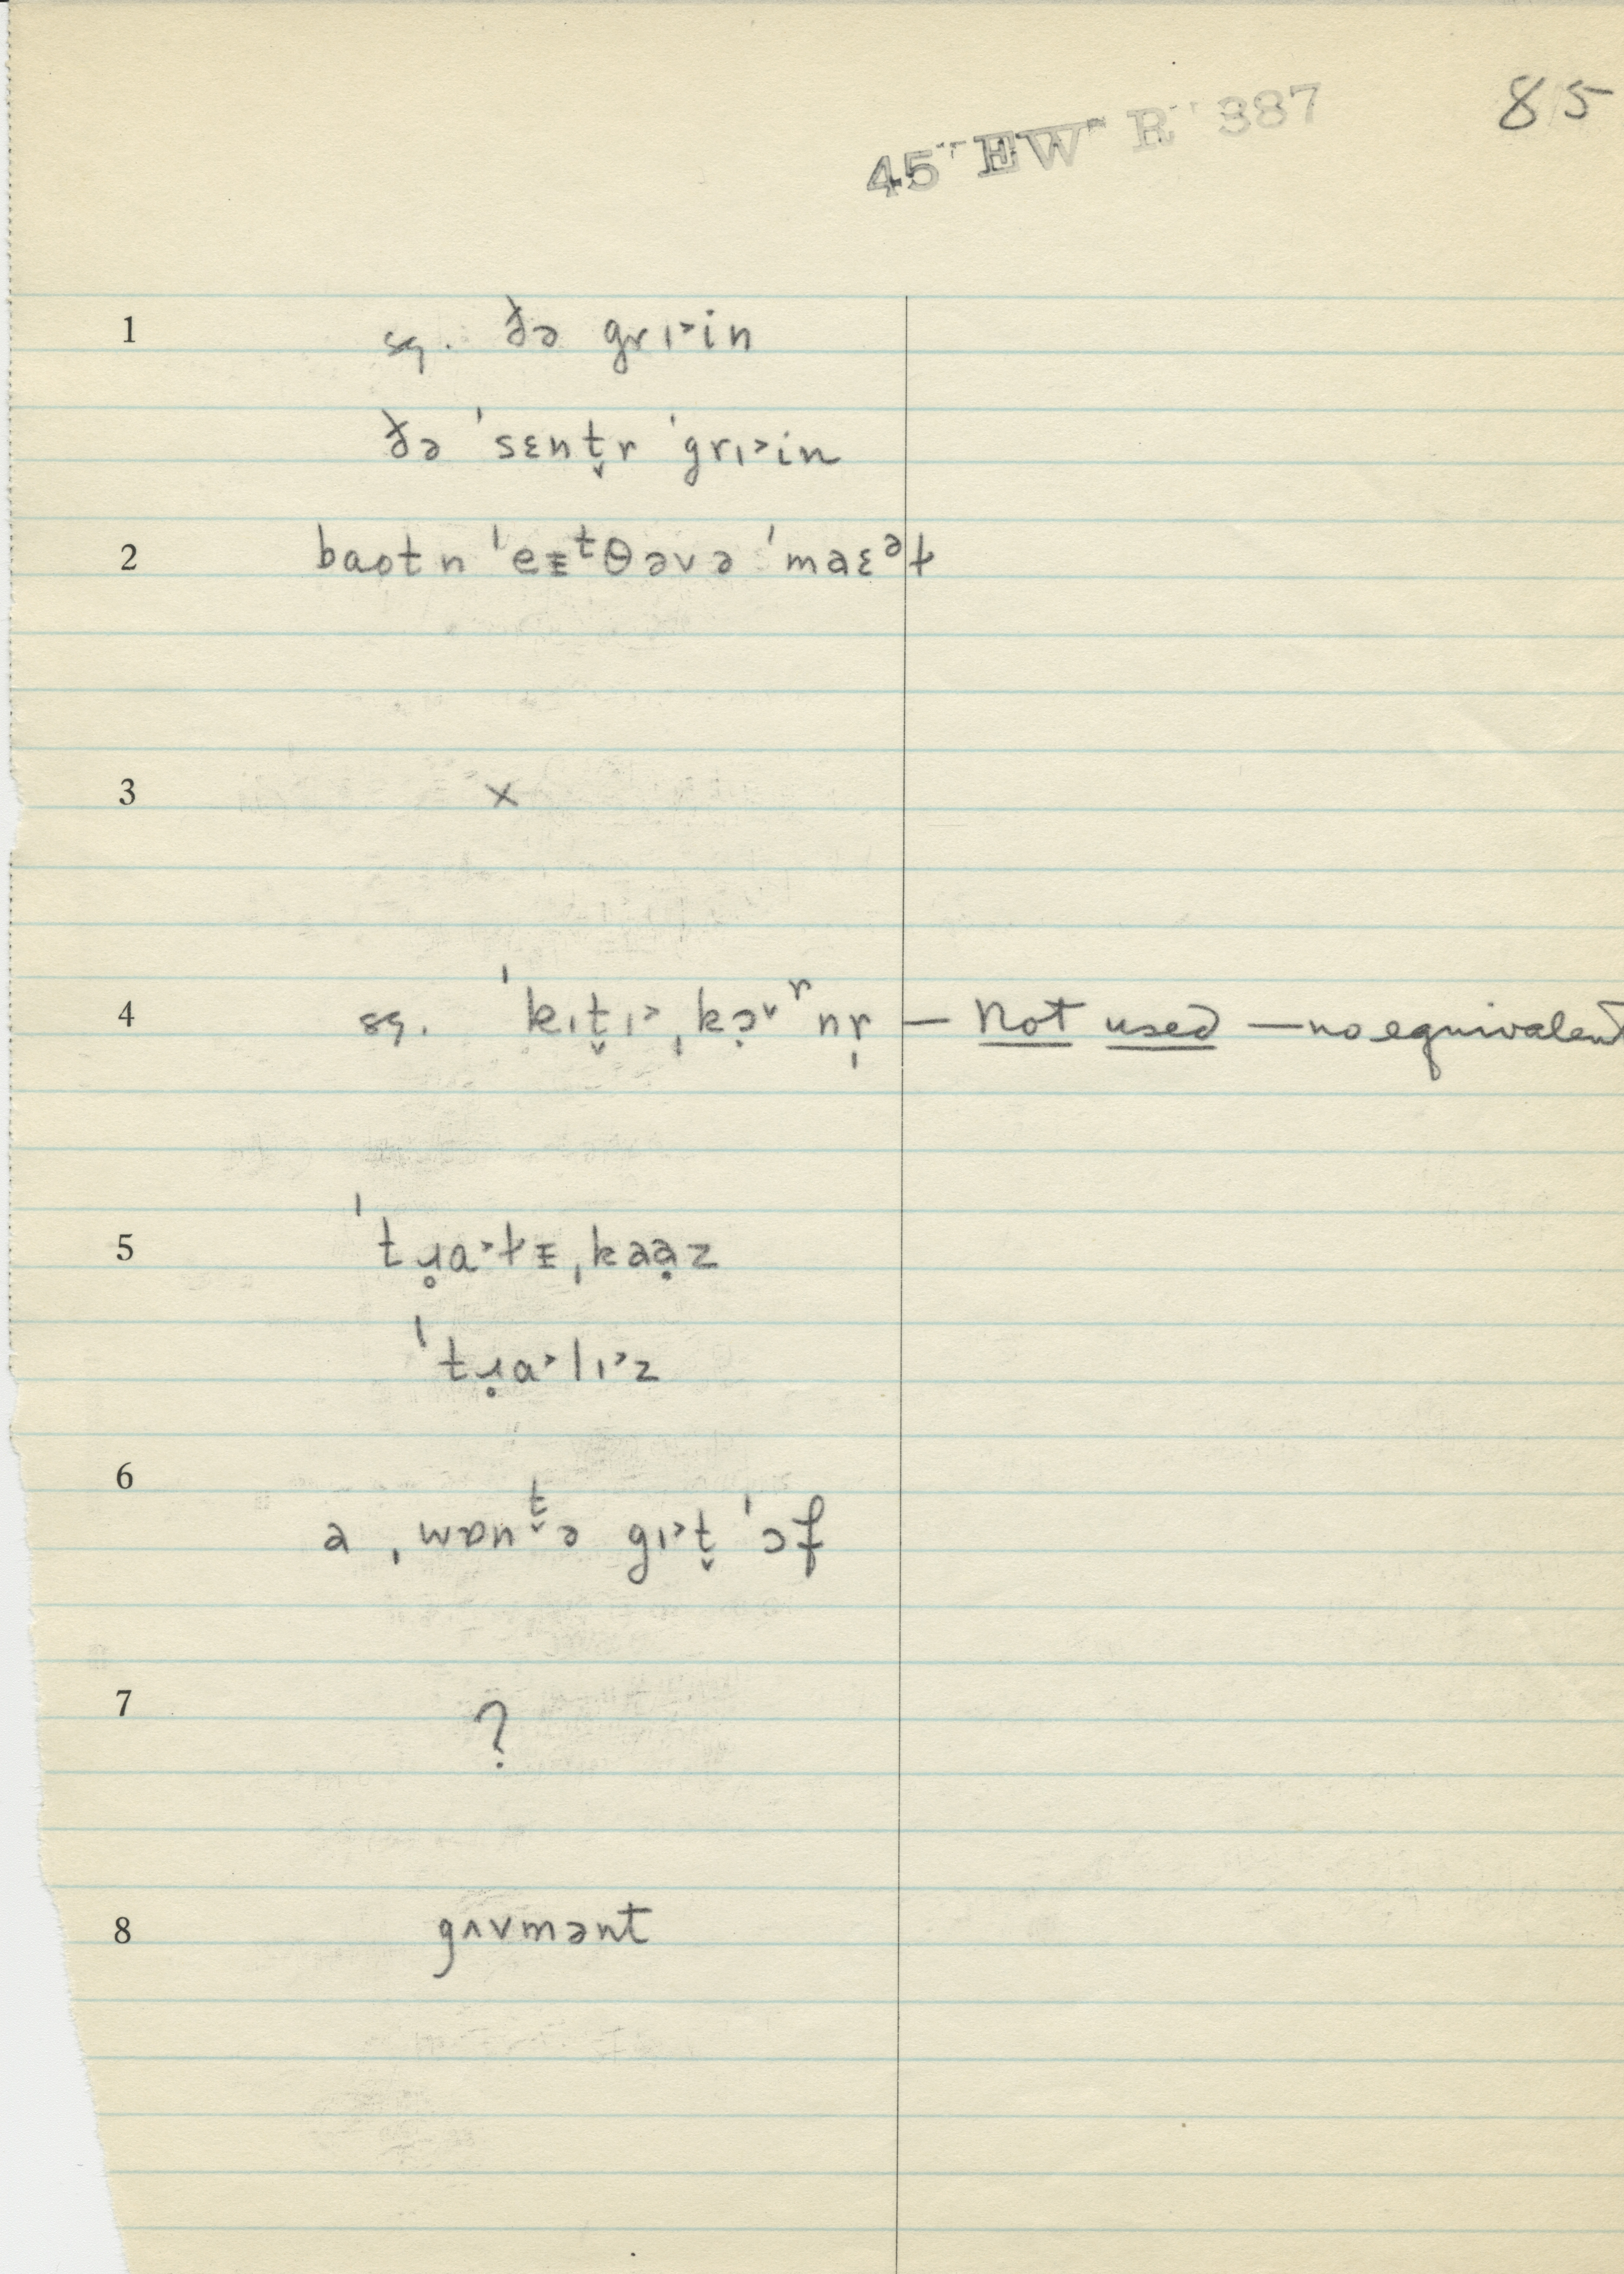 45 EW R 387
85
1 sq. ðə grɪ˃in
ðə ˈsɛnt̬r ˈgrɪ˃in
2 baot n ˈeᵻᵗθəvə ˈmaɛᵊɫ
3 ×
4 sq. ˈkɪt̬ɪ˃ˌkɔ̣˅ʳnr̩ — Not used — no equivalent
5 ˈtɹ̥a˃ɫᵻˌkaạz
ˈtɹ̥a˃lɪ˃z
6 a ˌwɒnᵗ̬ə gɪ˃t̬ ˈɔf
7 ?
8 gʌvmənt